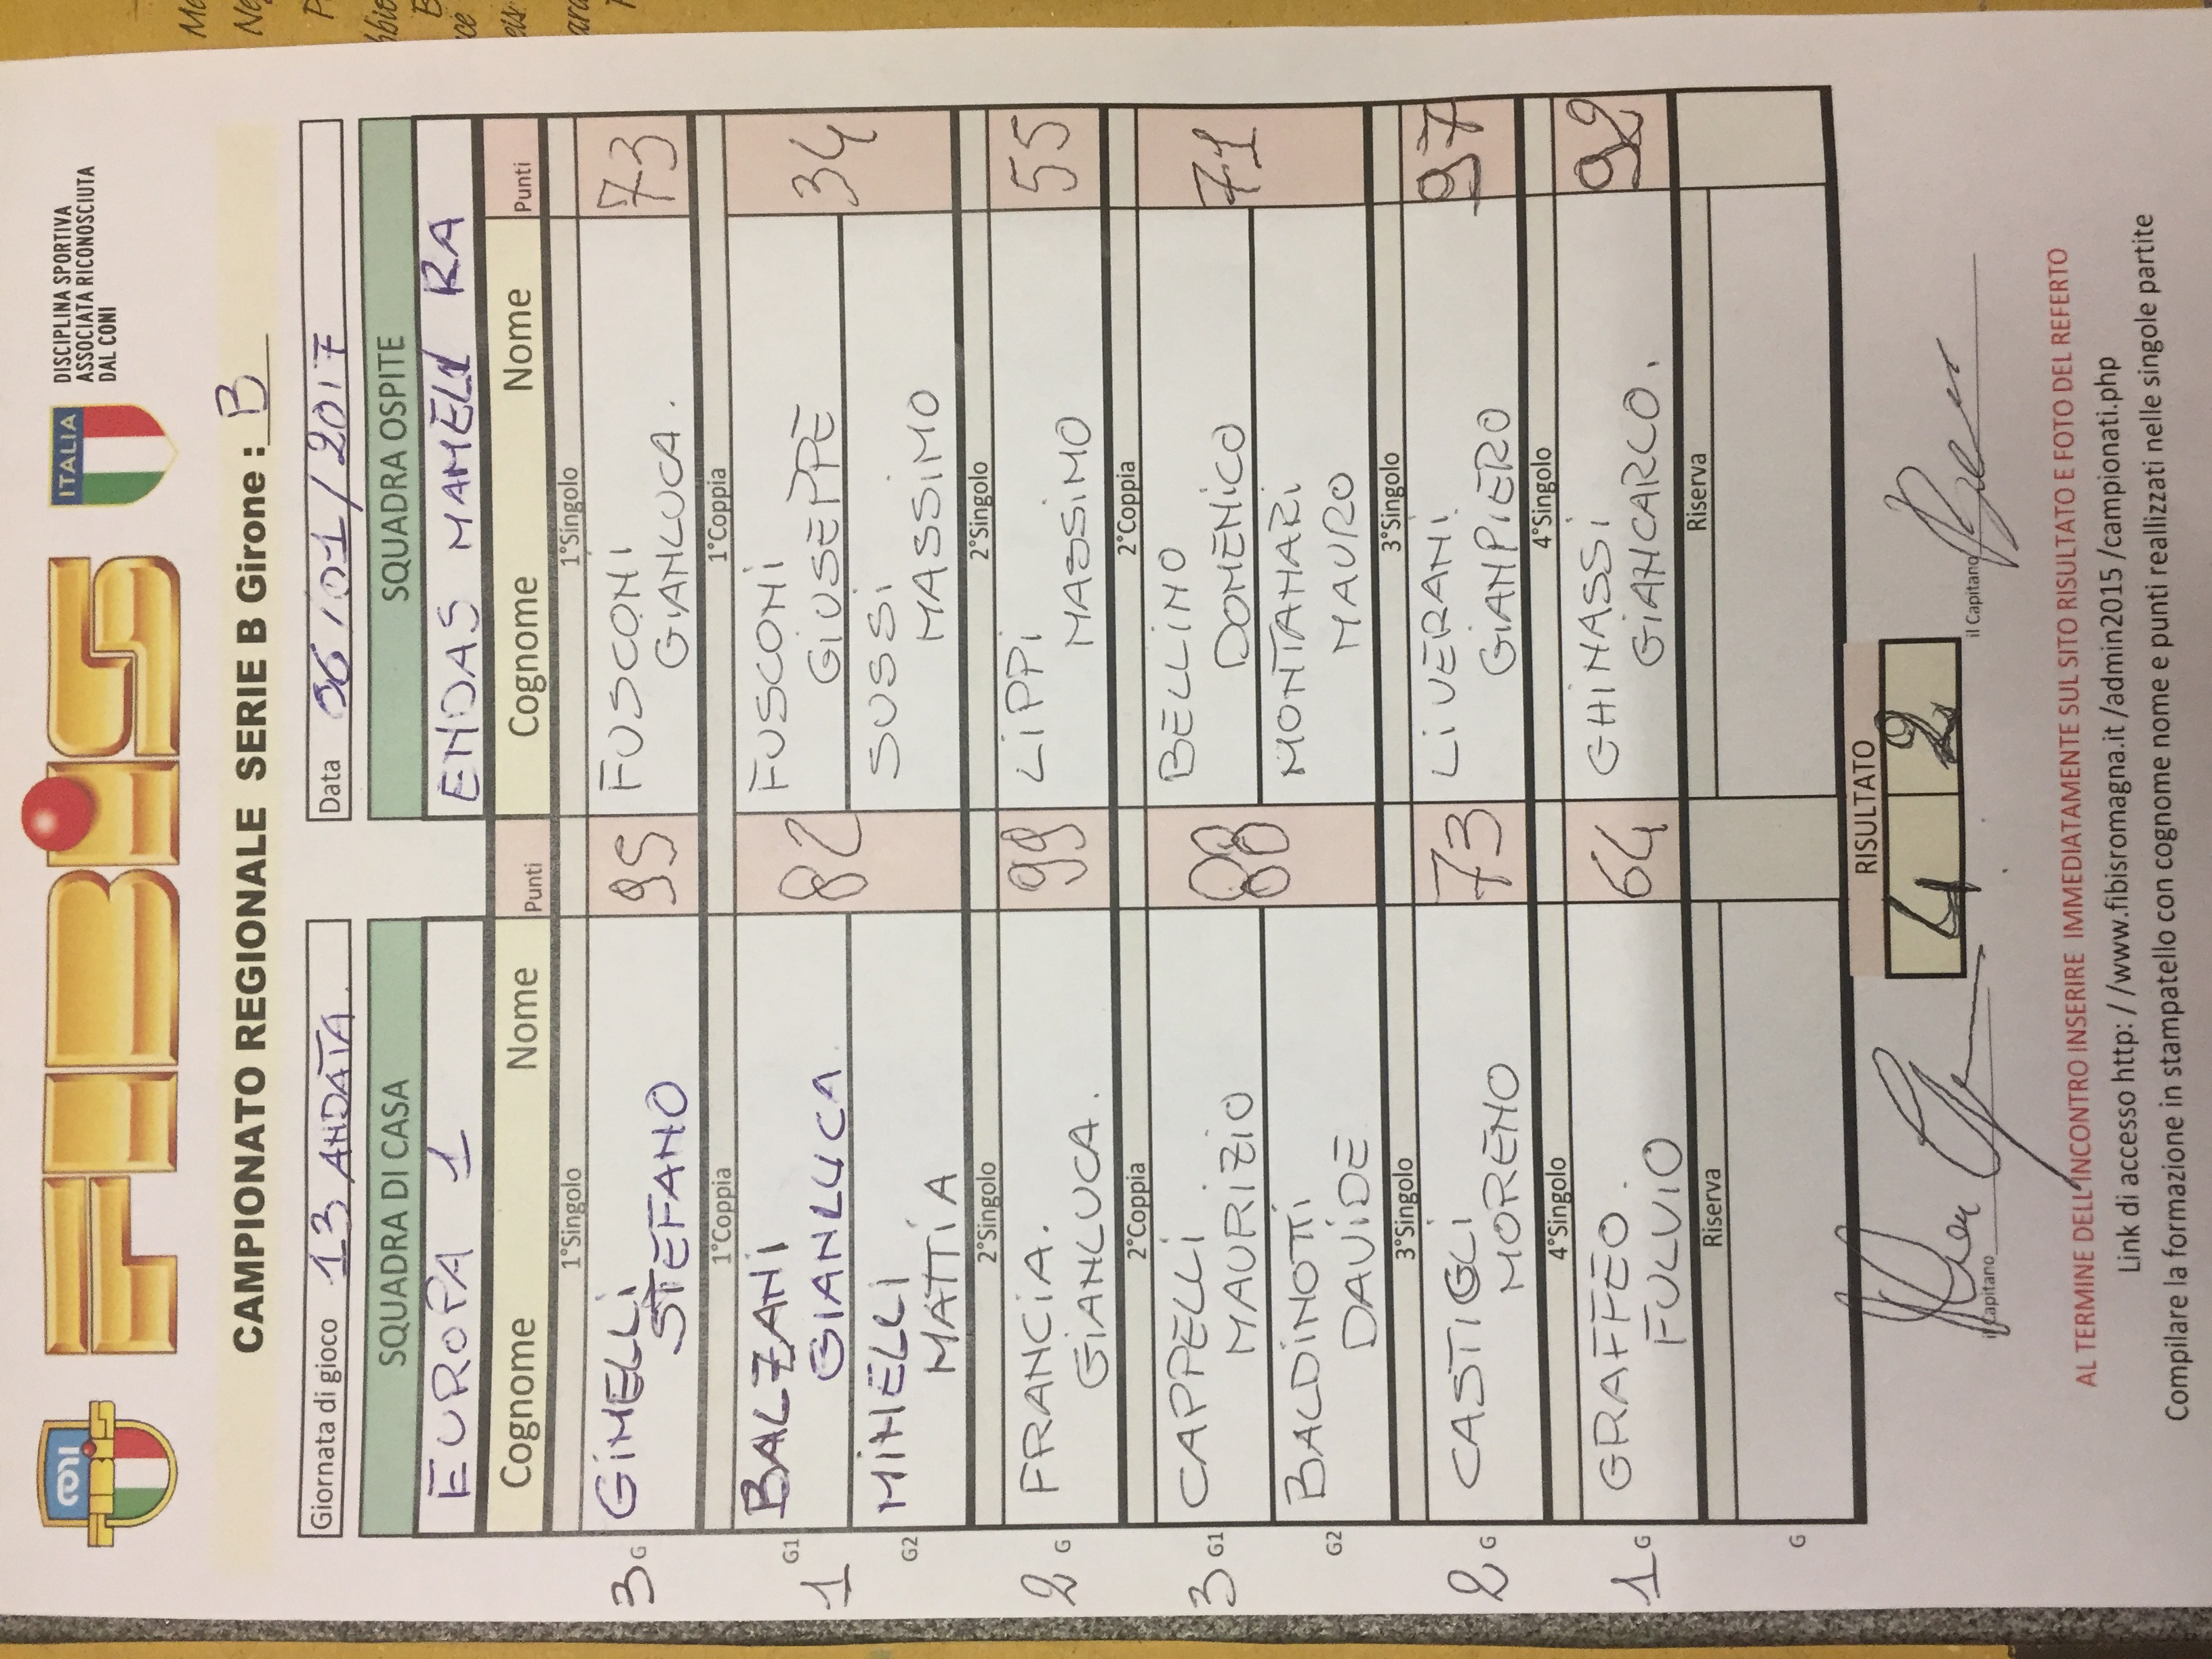 FIBIS
ITALIA
DISCIPLINA SPORTIVA
ASSOCIATA RICONOSCIUTA
DAL CONI
CAMPIONATO REGIONALE SERIE B Girone : B
Giornata di gioco 13 ANDATA. Data 06/01/2017
SQUADRA DI CASA SQUADRA OSPITE
EUROPA 1 ENDAS MAMELI RA
Cognome Nome Punti Cognome Nome Punti
1°Singolo 1°Singolo
3 G GIMELLI STEFANO 95 FUSCONI GIANLUCA. 73
1°Coppia 1°Coppia
1 G1 BALZANI GIANLUCA. 82 FUSCONI GIUSEPPE 34
G2 MINELLI MATTIA SUSSI MASSIMO
2°Singolo 2°Singolo
2 G FRANCIA. GIANLUCA. 99 LIPPI MASSIMO 55
2°Coppia 2°Coppia
3 G1 CAPPELLI MAURIZIO 88 BELLINO DOMENICO 71
G2 BALDINOTTI DAVIDE MONTANARI MAURO
3°Singolo 3°Singolo
2 G CASTIGLI MORENO 73 LIVERANI GIANPIERO 97
4°Singolo 4°Singolo
1 G GRAFFEO. FULVIO 64 GHINASSI GIANCARLO. 92
Riserva Riserva
G
RISULTATO
4 2
il Capitano il Capitano
AL TERMINE DELL'INCONTRO INSERIRE IMMEDIATAMENTE SUL SITO RISULTATO E FOTO DEL REFERTO
Link di accesso http: / /www.fibisromagna.it /admin2015 /campionati.php
Compilare la formazione in stampatello con cognome nome e punti reallizzati nelle singole partite